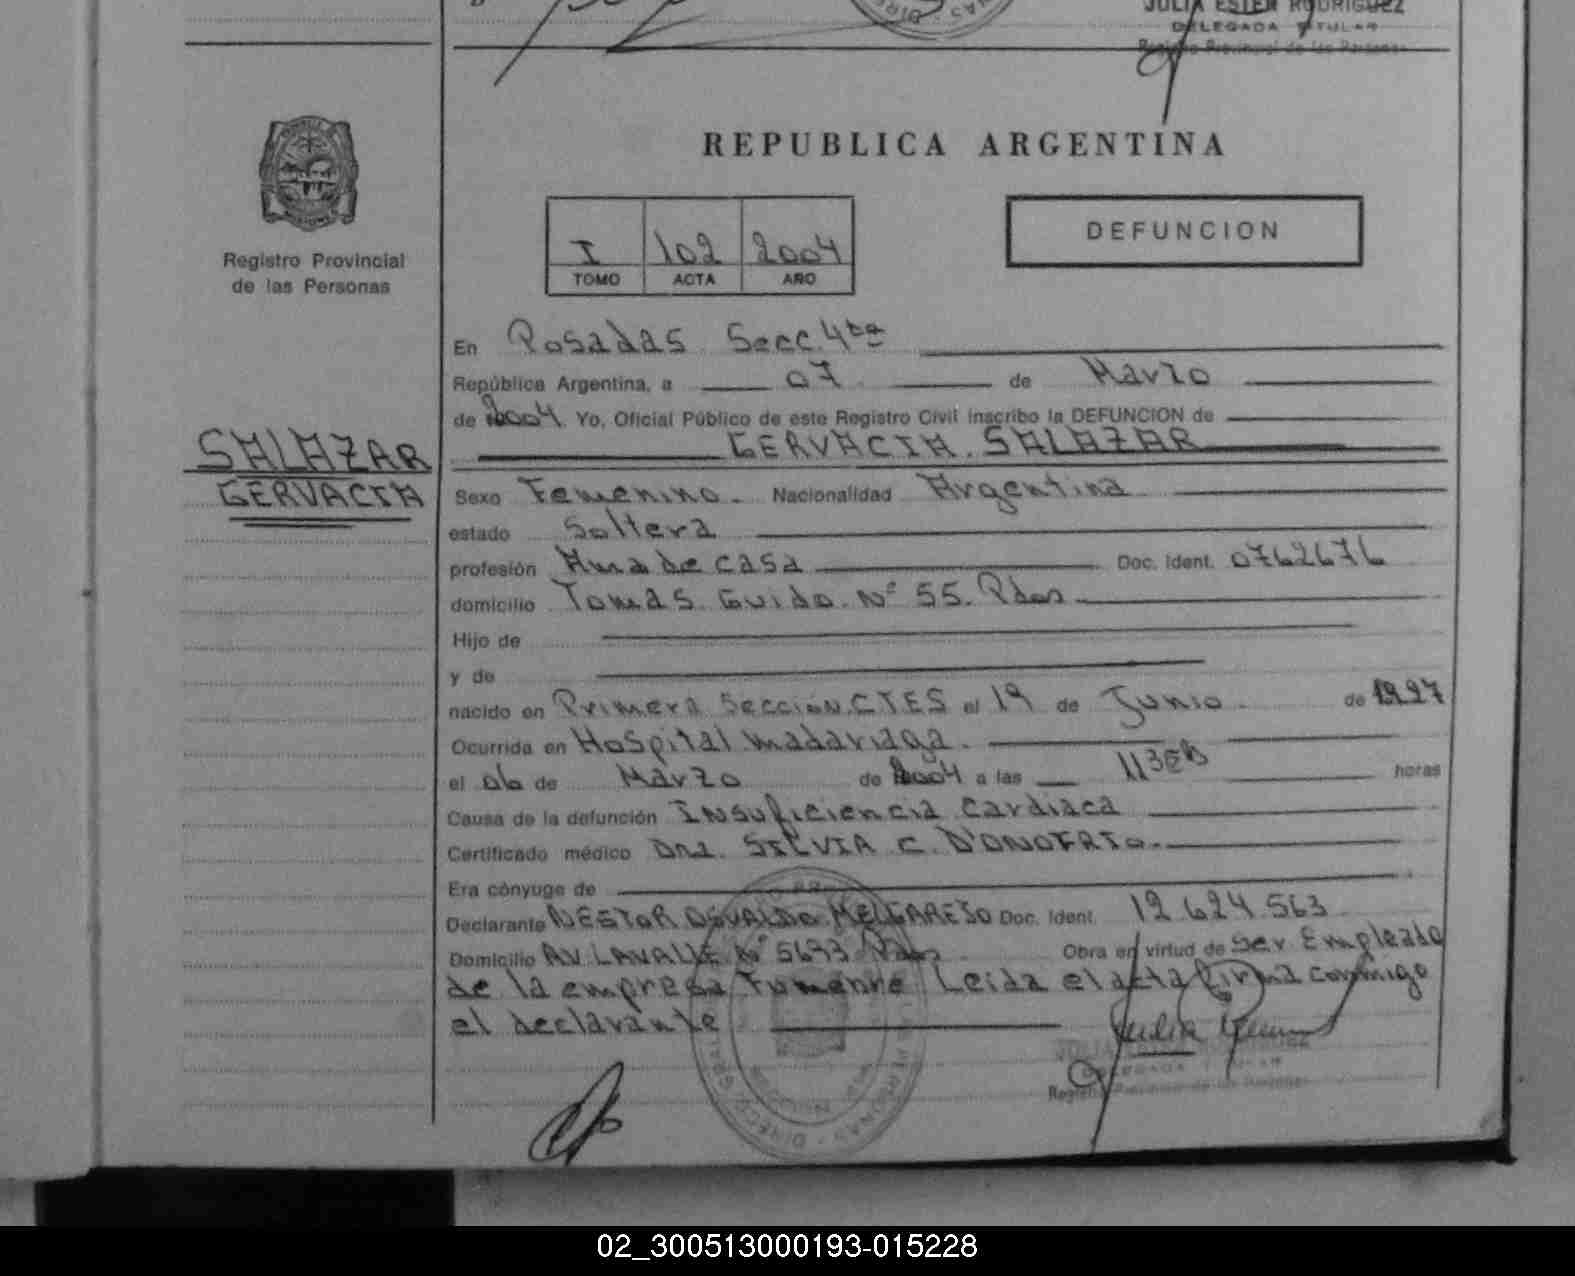 JULIA ESTER RODRIGUEZ
DELEGADA TITULAR
Registro Provincial de las Personas
REPUBLICA ARGENTINA
I 102 2004
TOMO ACTA AÑO
DEFUNCION
Registro Provincial
de las Personas
En Posadas Secc. 4ta
República Argentina, a 07 de Marzo
de 2004. Yo, Oficial Público de este Registro Civil inscribo la DEFUNCION de
GERVACIA. SALAZAR
SALAZAR
GERVACIA
Sexo Femenino. Nacionalidad Argentina
estado Soltera
profesión Ama de casa Doc. Ident. 0762676
domicilio Tomas Guido. Nº 55. Pdas
Hijo de
y de
nacido en Primera Sección. CTES el 19 de Junio. de
Ocurrida en Hospital Madariaga.
el 06 de Marzo de 2004 a las horas
Causa de la defunción Insuficiencia cardiaca
Certificado médico Dra. SILVIA C. D'ONOFRIO.
Era cónyuge de
Declarante NESTOR OSVALDO MELGAREJO Doc. Ident. 12.624.563
Domicilio AV. LAVALLE Nº 5693 Pdas Obra en virtud de ser Empleado
de la empresa Leida el acta firma conmigo
el declarante
DELEGADA TITULAR
Registro Provincial de las Personas
02_300513000193-015228